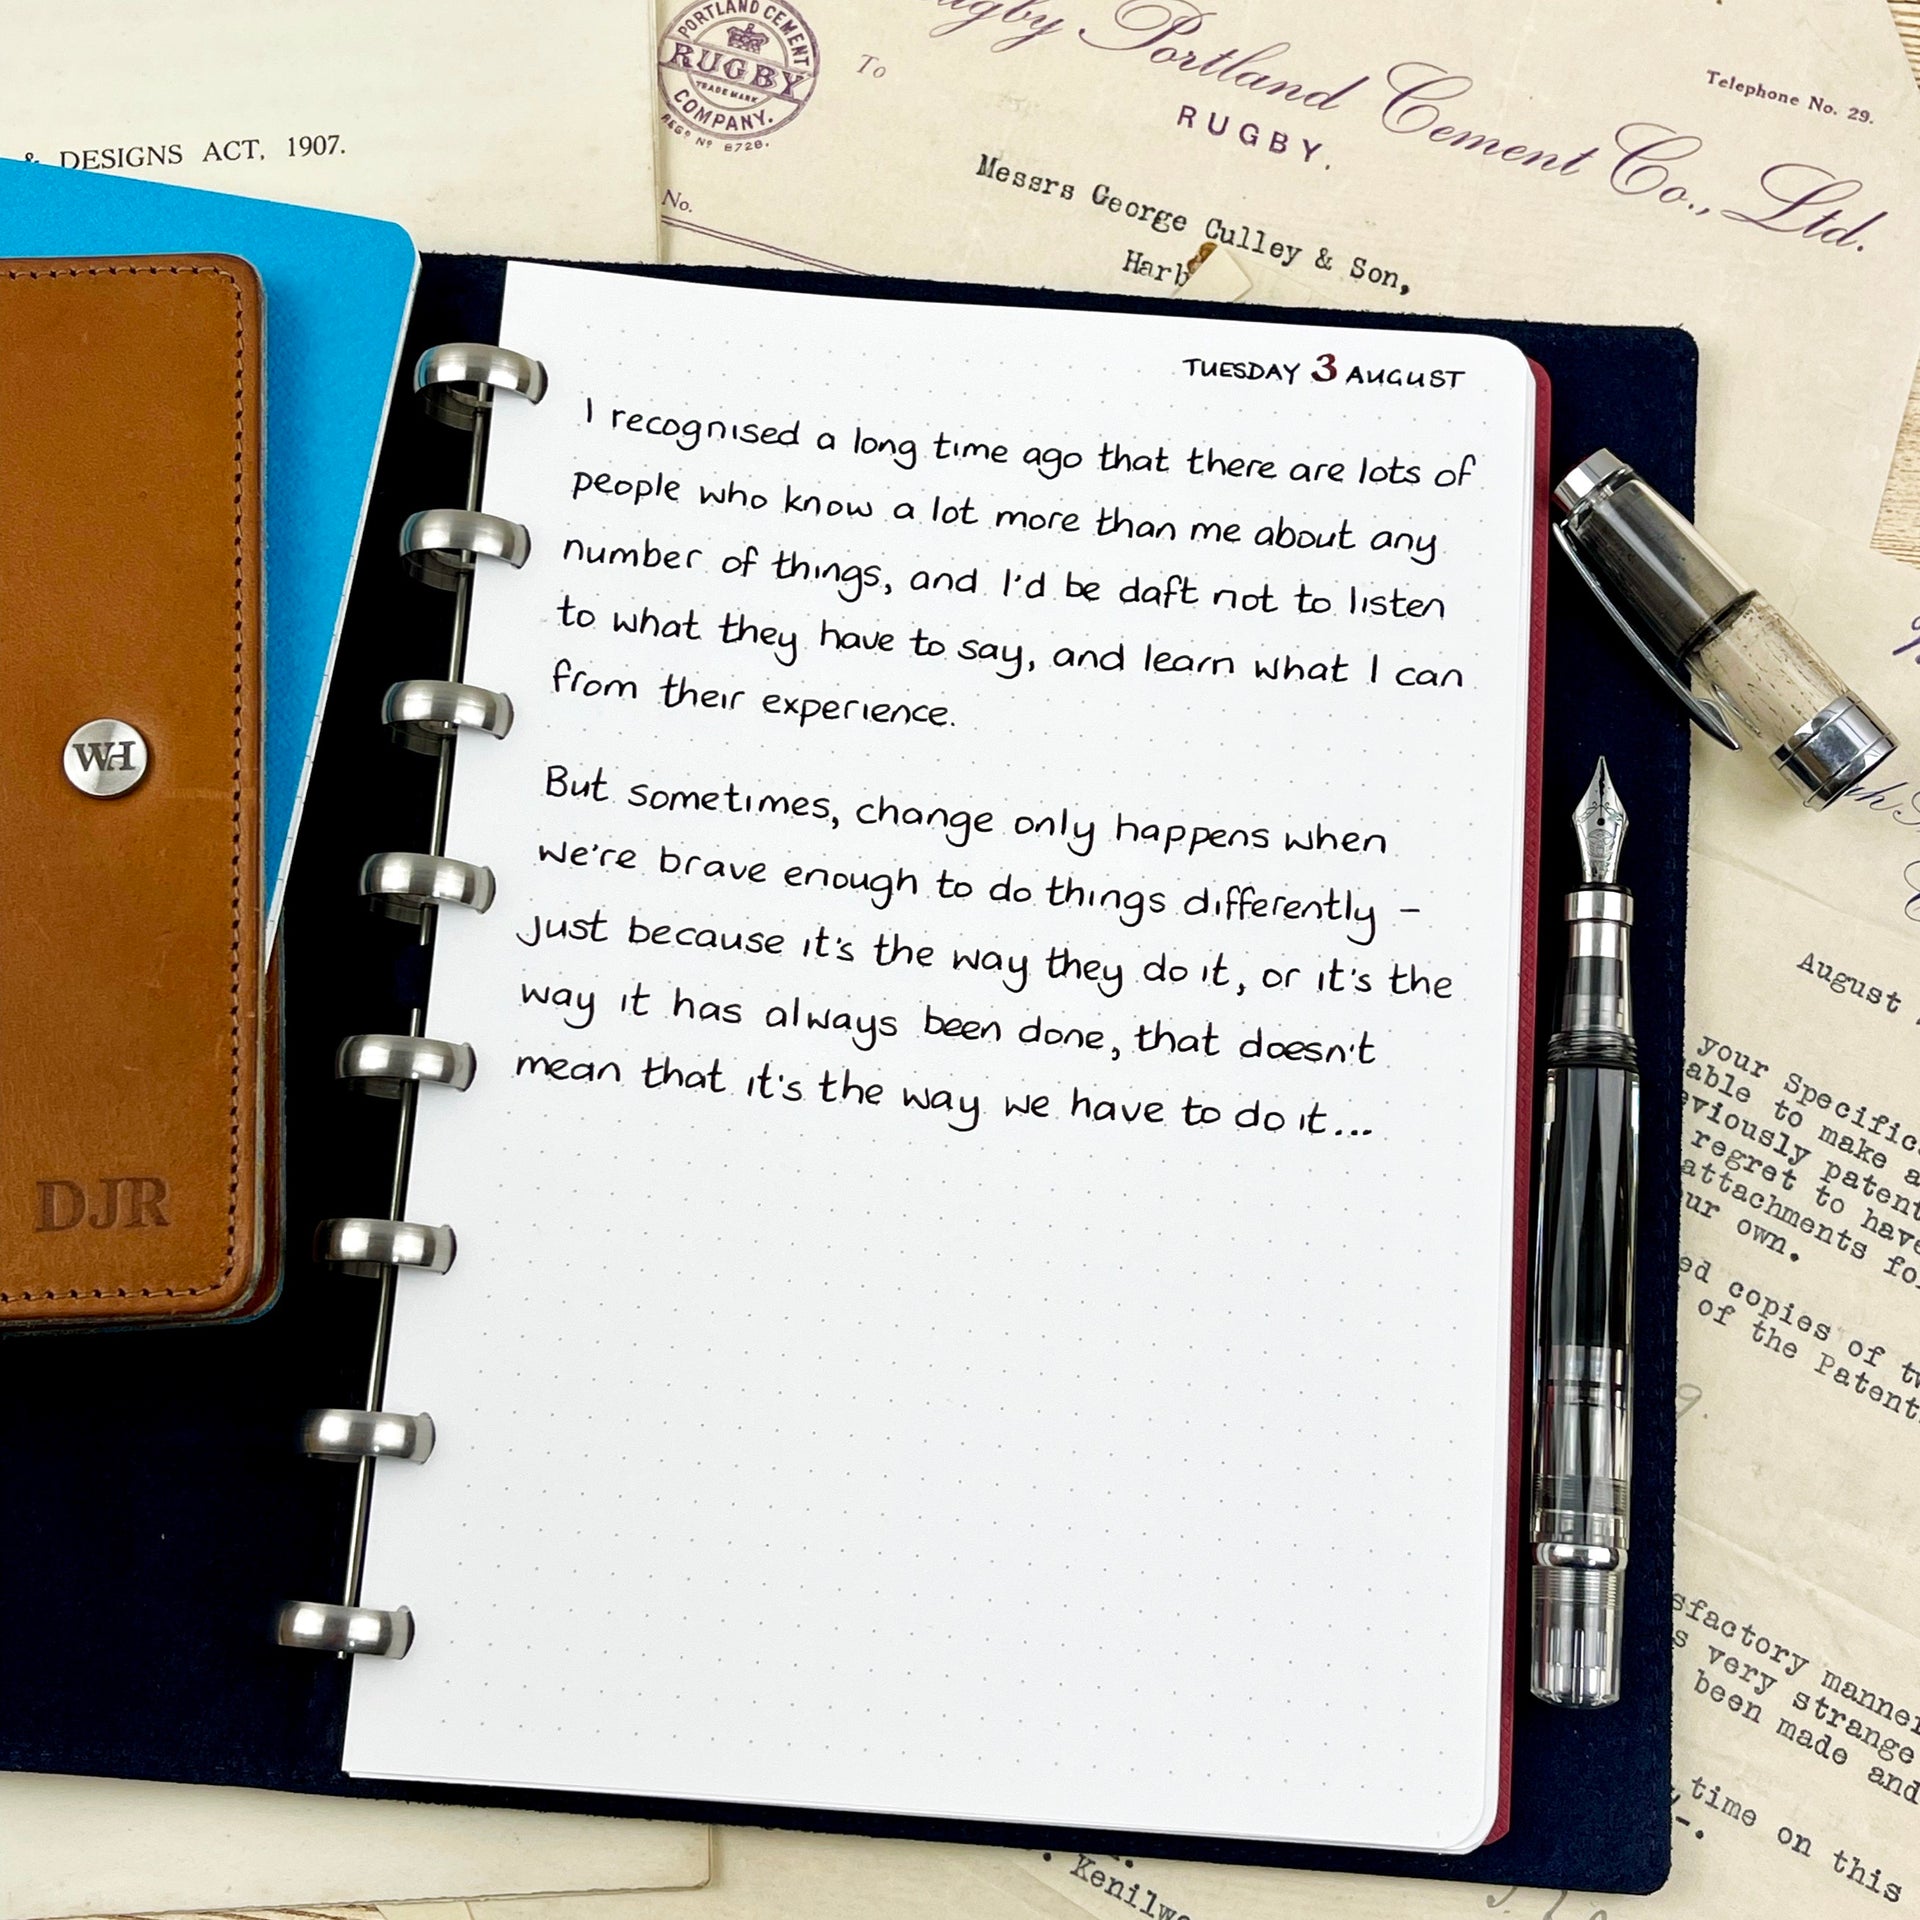 PORTLAND CEMENT
RUGBY
TRADE MARK
COMPANY.
REGD No 8728.
To
Rugby Portland Cement Co., Ltd.
RUGBY.
Telephone No. 29.
Messrs George Culley & Son,
No.
& DESIGNS ACT, 1907.
TUESDAY 3 AUGUST
I recognised a long time ago that there are lots of
people who know a lot more than me about any
number of things, and I'd be daft not to listen
to what they have to say, and learn what I can
from their experience.
But sometimes, change only happens when
we're brave enough to do things differently -
just because it's the way they do it, or it's the
way it has always been done, that doesn't
mean that it's the way we have to do it...
WH
DJR
August
your
able to make a
patent
regret to have
attachments
own.
copies of
of the Patent
manner
very strange
been made and
time on this